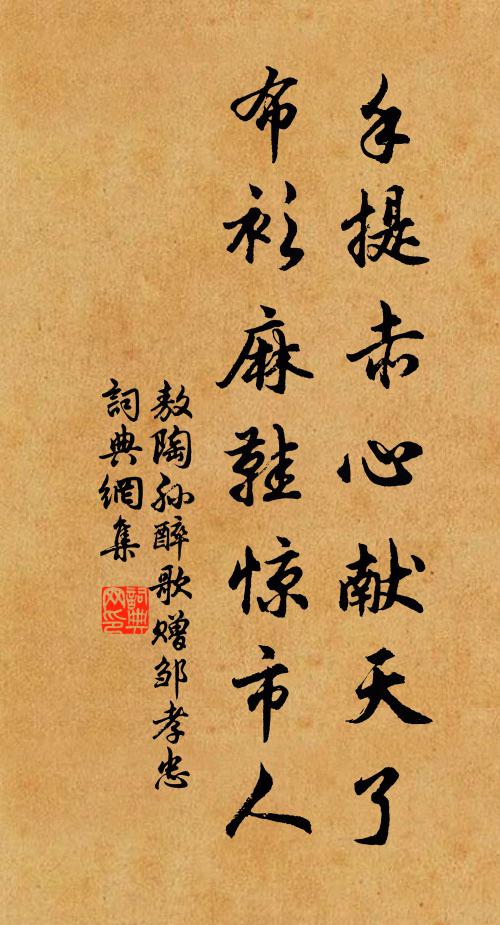 手提赤心献天了
布衫麻鞋惊市人
敖陶孙醉歌赠邹孝忠
詞典網集
詞典网印